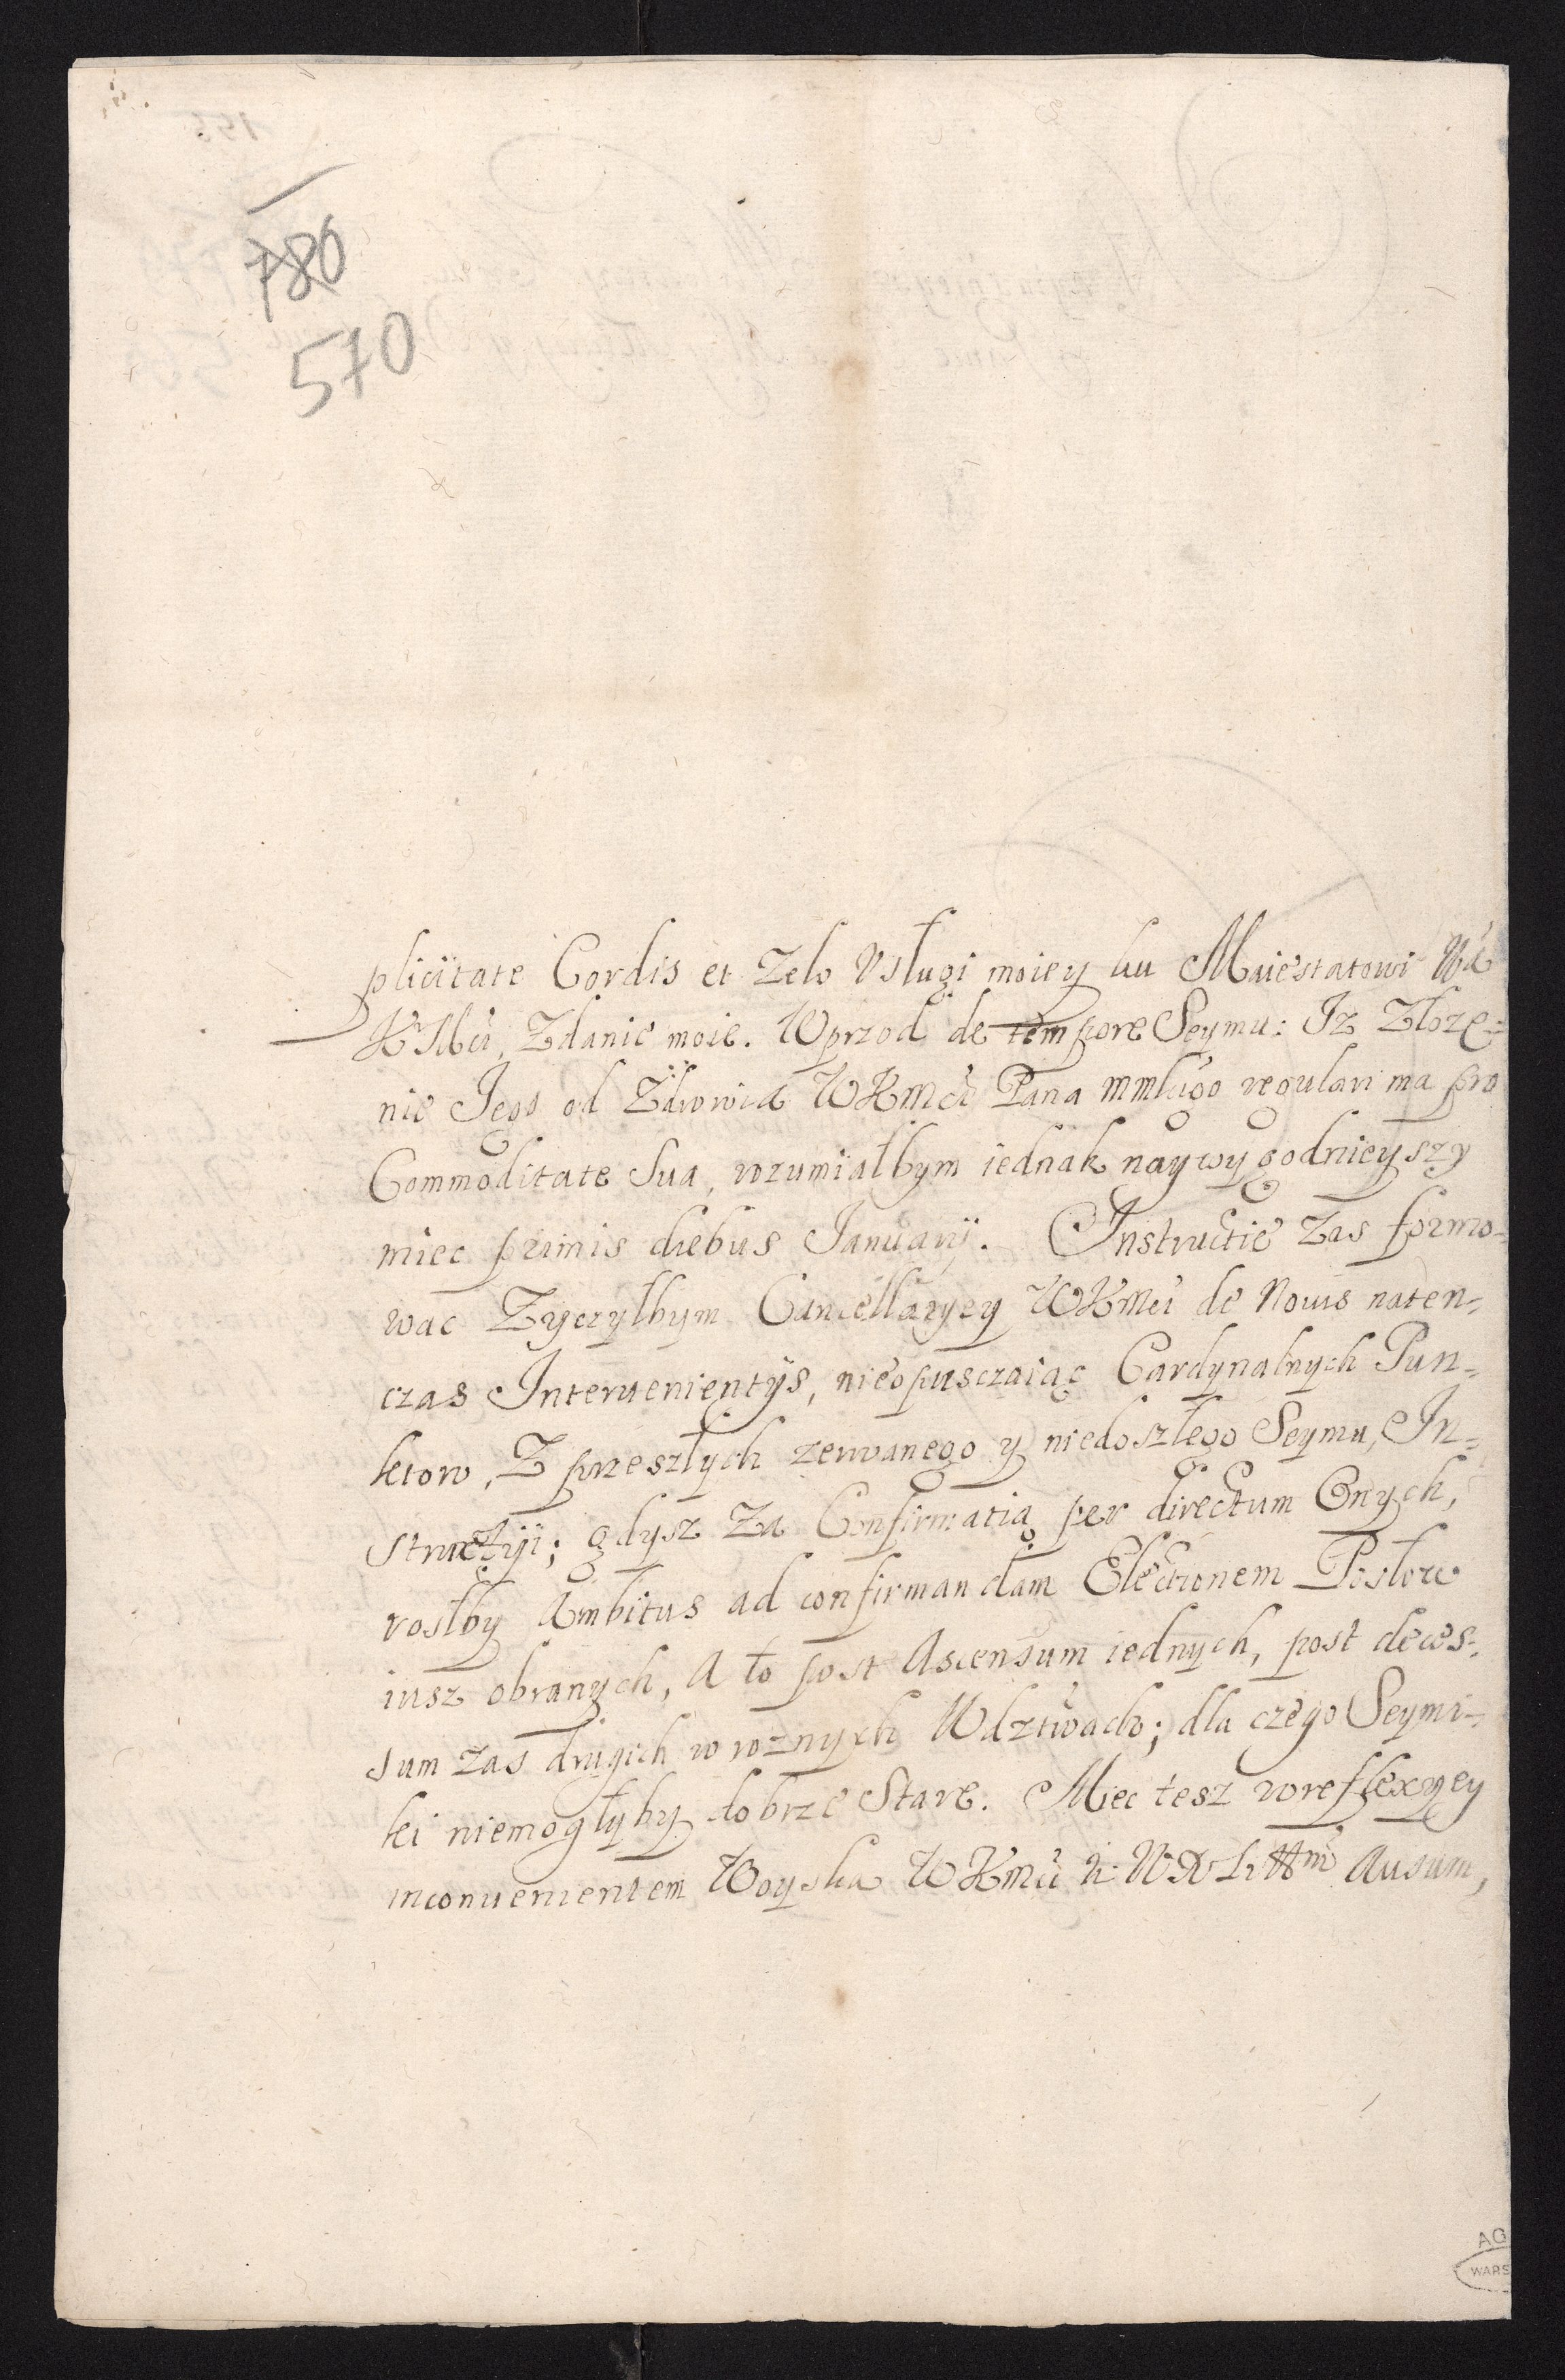 780
570
plicitate Cordis et Zelo Usługi moiey ku Maiestatowi Wa
KMci, Zdanie moie. Wprzod de tempore Seymu: Iz Złoze=
nie Jego od Zdrowia WKMci Pana mmłcigo regulari ma pro
Commoditate Sua, rozumiałbym iednak naywygodnieyszy
miec primis diebus Januarij. Instructie zas formo-
wac Zyczyłbym Cancellaryey WKMci de Novis naten-
czas Intervenientijs, nieopusczaiąc Cardynalnych Pun-
ktow, Z przeszłych zerwanego y niedoszłego Seymu, In-
structij; gdysz Za Confirmatią per directum Onych,
rosłby Ambitus ad confirmandam Electionem Posłow
iusz obranych, A to post Ascensum iednych, post deces-
sum zas drugich w roznych Wdztwach; dla czego Seymi-
ki niemogłyby dobrze Stare. Miec tesz w reflexyey
inconvenientem Woyska WKMci Ausum,
AG
WARS